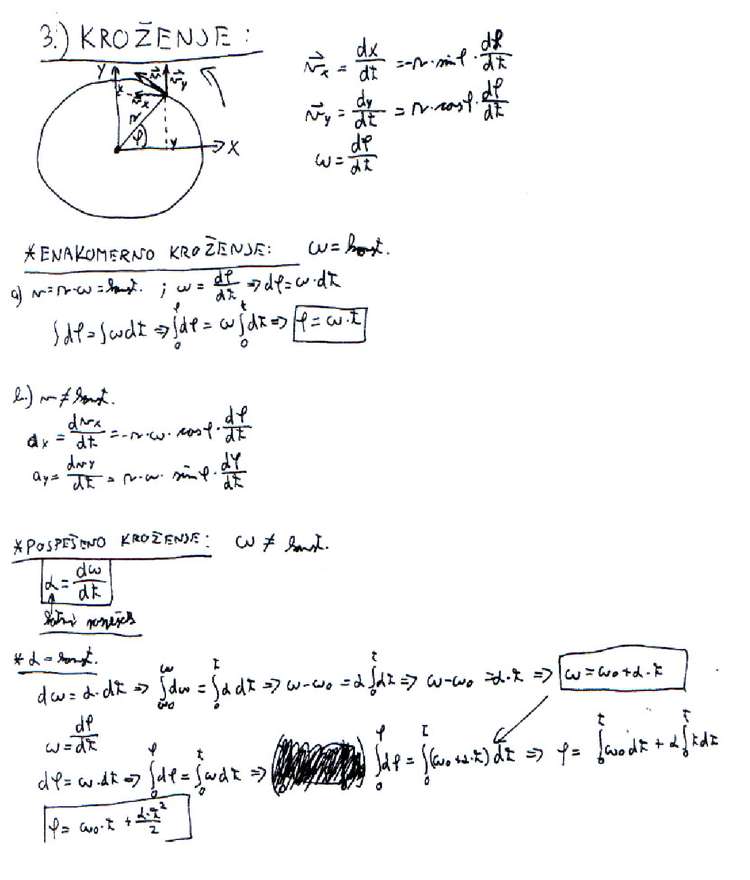 3.) KROŽENJE:
y x v⃗ v⃗y v⃗x r φ y x
v⃗x = dx/dt = -r·sinφ·dφ/dt
v⃗y = dy/dt = r·cosφ·dφ/dt
ω = dφ/dt
*ENAKOMERNO KROŽENJE: ω = konst.
a) v = r·ω = konst. ; ω = dφ/dt ⇒ dφ = ω·dt
∫dφ = ∫ωdt ⇒ ∫₀^φ dφ = ω ∫₀^t dt ⇒ φ = ω·t
b.) v ≠ konst.
ax = dvx/dt = -r·ω·cosφ·dφ/dt
ay = dvy/dt = r·ω·sinφ·dφ/dt
*POSPEŠENO KROŽENJE: ω ≠ konst.
α = dω/dt
kotni pospešek
*α = konst.
dω = α·dt ⇒ ∫_ω0^ω dω = ∫₀^t α dt ⇒ ω-ω0 = α ∫₀^t dt ⇒ ω-ω0 = α·t ⇒ ω = ω0 + α·t
ω = dφ/dt
dφ = ω·dt ⇒ ∫₀^φ dφ = ∫₀^t ωdt ⇒ ∫₀^φ dφ = ∫₀^t (ω0 + α·t) dt ⇒ φ = ∫₀^t ω0 dt + α ∫₀^t t dt
φ = ω0·t + α·t²/2